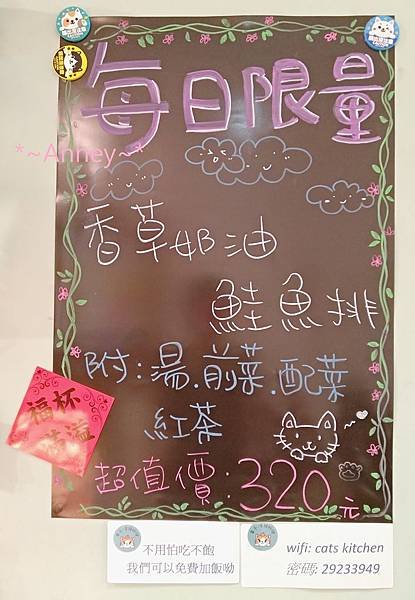 每日限量
*~Anney~*
香草奶油
鮭魚排
附:湯.前菜.配菜
紅茶
福杯
滿溢
超值價:320元
不用怕吃不飽
我們可以免費加飯呦
wifi: cats kitchen
密碼: 29233949